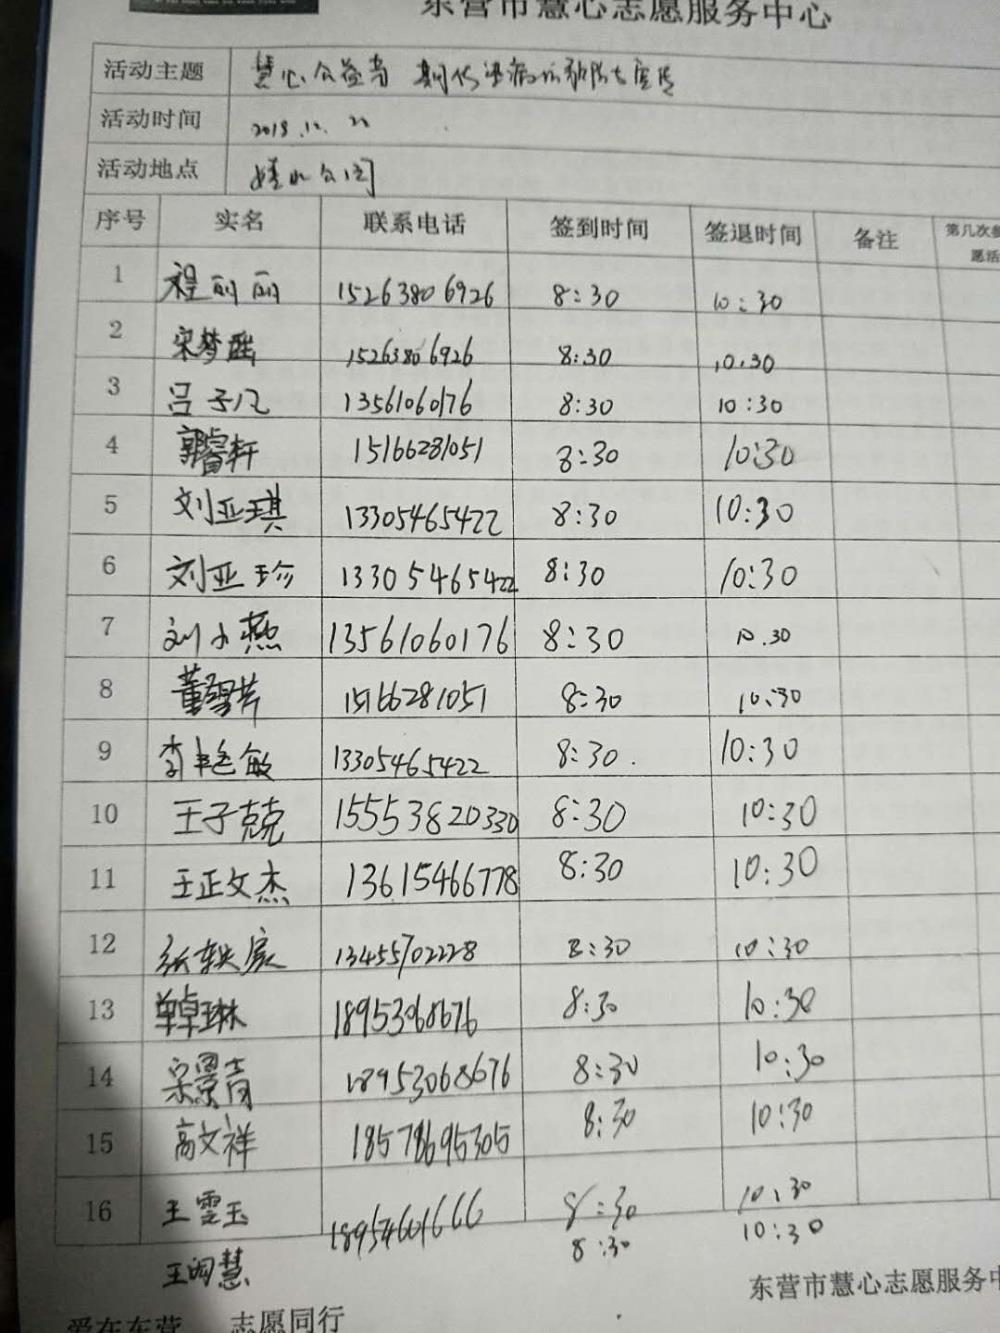 东营市慧心志愿服务中心
活动主题 慧心公益者
活动时间 2018.12.22
活动地点
序号 实名 联系电话 签到时间 签退时间 备注 第几次参
愿活
1 程丽丽 15263806926 8:30 10:30
2 宋梦瑶 15263806926 8:30 10.30
3 吕子凡 13561060176 8:30 10:30
4 郭睿轩 15166281051 8:30 10:30
5 刘亚琪 13305465422 8:30 10:30
6 刘亚珍 13305465422 8:30 10:30
7 刘小燕 13561060176 8:30 10.30
8 董 15166281051 8:30 10:30
9 李艳敏 13305465422 8:30. 10:30
10 王子克 15553820330 8:30 10:30
11 王正文杰 13615466778 8:30 10:30
12 张轶宸 13455702228 8:30 10:30
13 单卓琳 18953068676 8:30 10:30
14 宋景青 18953068676 8:30 10:30
15 高文祥 18578695305 8:30 10:30
16 王雯玉 18954601666 8:30 10:30
王闰慧 8:30 10:30
东营市慧心志愿服务中
爱在东营 志愿同行